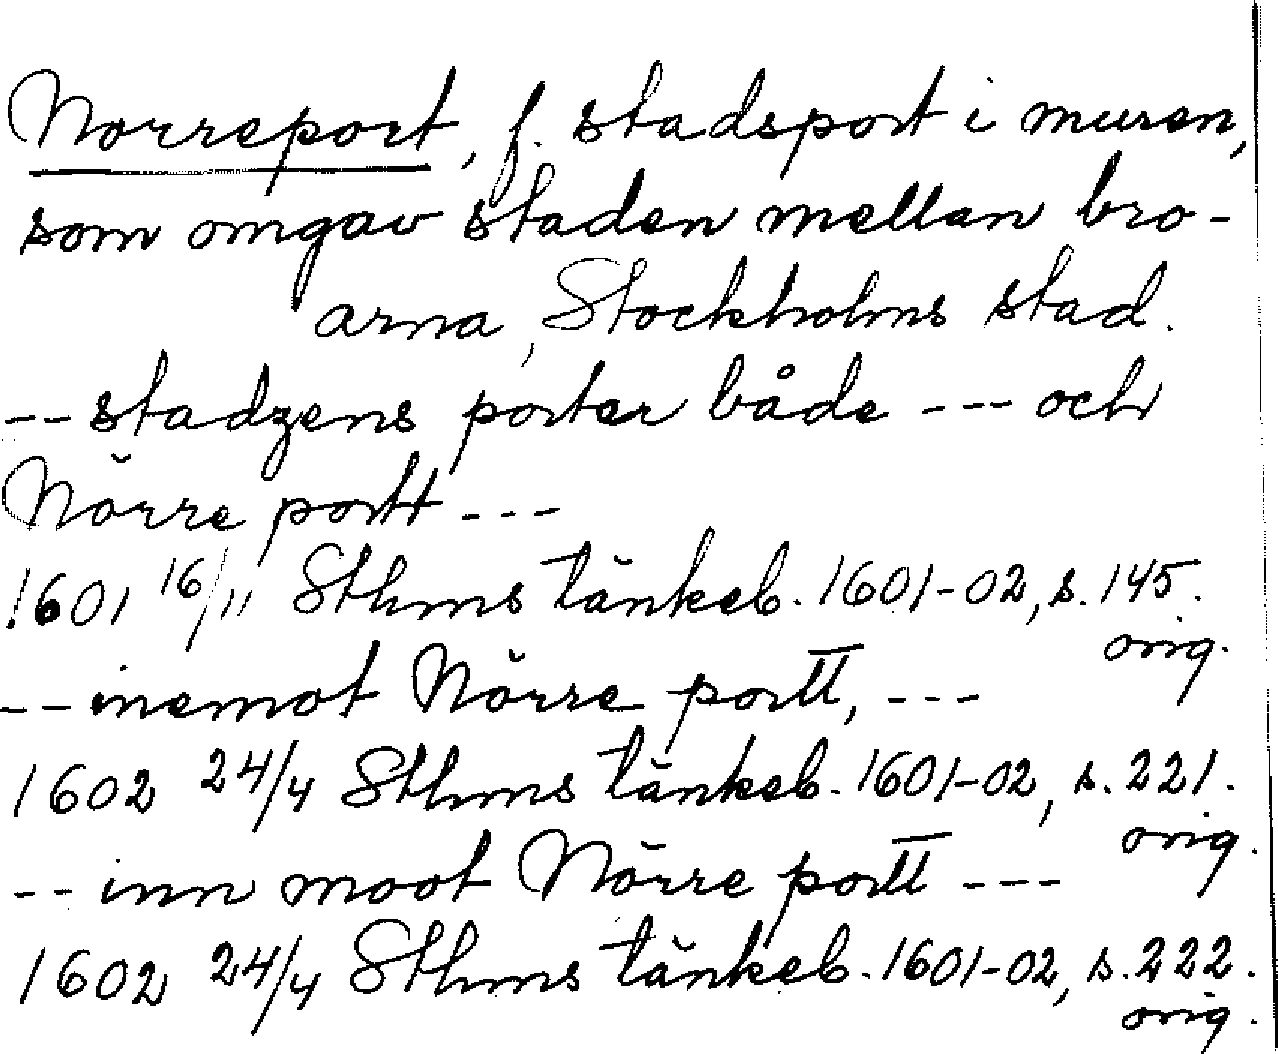 Norreport, f. stadsport i muren,
som omgav staden mellan bro-
arna, Stockholms stad.
-- stadzens porter både --- och
Nörre portt ---
1601 16/11 Sthms tänkeb. 1601-02, s. 145.
orig.
-- inemot Nörre portt, ---
1602 24/4 Sthms tänkeb. 1601-02, s. 221.
orig.
-- inn moot Nörre portt ---
1602 24/4 Sthms tänkeb. 1601-02, s. 222.
orig.